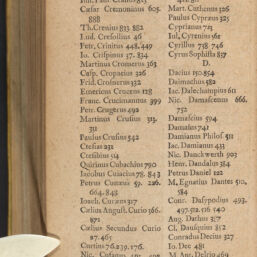 Cæsar Cremoninus 605.
888
Th. Crenius 833 882
Ind. Cresollius 46
Petr. Crinitus 448.449
Io. Crispinus 37. 834
Martinus Cromerus 363
Casp. Cropacius 326
Frid.
Emericus Cruceus 128
Franc. Cucimannus 399
Petr. Crugerus 492
Martinus Crusius 313.
311
Paulus Crusius 542
Ctesias 231
Ctesibius 114
Quirinus Cubachius 790
Iacobus Cuiacius 78. 843
Petrus Cunæus 57. 226.
664. 848
Ioach. Curæus 317
Cælius August. Curio 366.
871
Cælius Secundus Curio
27. 465
Curtius 76.239.176.
Nic. Cusanus
Mart. Cuthenus 526
Paulus Cypræus 325
Cyprianus 743
Iul. Cyrenius 561
Cyrillus 738 746
Cyrus Sophilus 837
D.
Dacius 150.854
Daimachus 582
Iac. Dalechampius 611
Nic. Damascenus 666.
752
Damascius 594
Damasus 742
Damianus Philos 511
Iac. Damianus 433
Nic. Danckwerth 903
Henr. Dandalus 384
Petrus Daniel 122
M. Egnatius Dantes 510.
584
Conr. Dasypodius 493.
497.512.516 740
Aug. Dathus 317
Cl. Dausquius 852
Conradus Decius 327
Io. Dec 481
M. Ant. Delrio 469